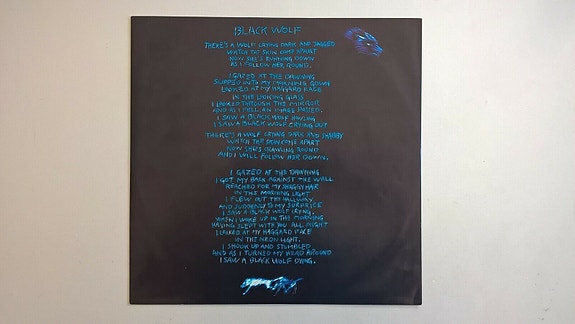 BLACK WOLF
THERE'S A WOLF CRYING DARK AND JAGGED
WATCH THE SKIN COME APART
NOW SHE'S RUNNING DOWN
AS I FOLLOW HER ROUND.
I GAZED AT THE DAWNING
SLIPPED INTO MY MORNING GOWN
LOOKED AT MY HAGGARD FACE
IN THE LOOKING GLASS
I LOOKED THROUGH THE MIRROR
AND AS I FELL, AN IMAGE PASSED.
I SAW A BLACK WOLF
I SAW A BLACK WOLF CRYING OUT
THERE'S A WOLF CRYING DARK AND SHABBY
WATCH THE SKIN COME APART
NOW SHE'S CRAWLING ROUND
AND I WILL FOLLOW HER DOWN.
I GAZED AT THE DAWNING
I GOT MY BACK AGAINST THE WALL
REACHED FOR MY SHAGGY HAIR
IN THE MORNING LIGHT.
I FLEW OUT THE HALLWAY
AND SUDDENLY TO MY SURPRISE
I SAW A BLACK WOLF CRYING.
WHEN I WOKE UP IN THE MORNING
HAVING SLEPT WITH YOU ALL NIGHT
I LOOKED AT MY HAGGARD FACE
IN THE NEON LIGHT.
I SHOOK UP AND STUMBLED
AND AS I TURNED MY HEAD AROUND
I SAW A BLACK WOLF DYING.